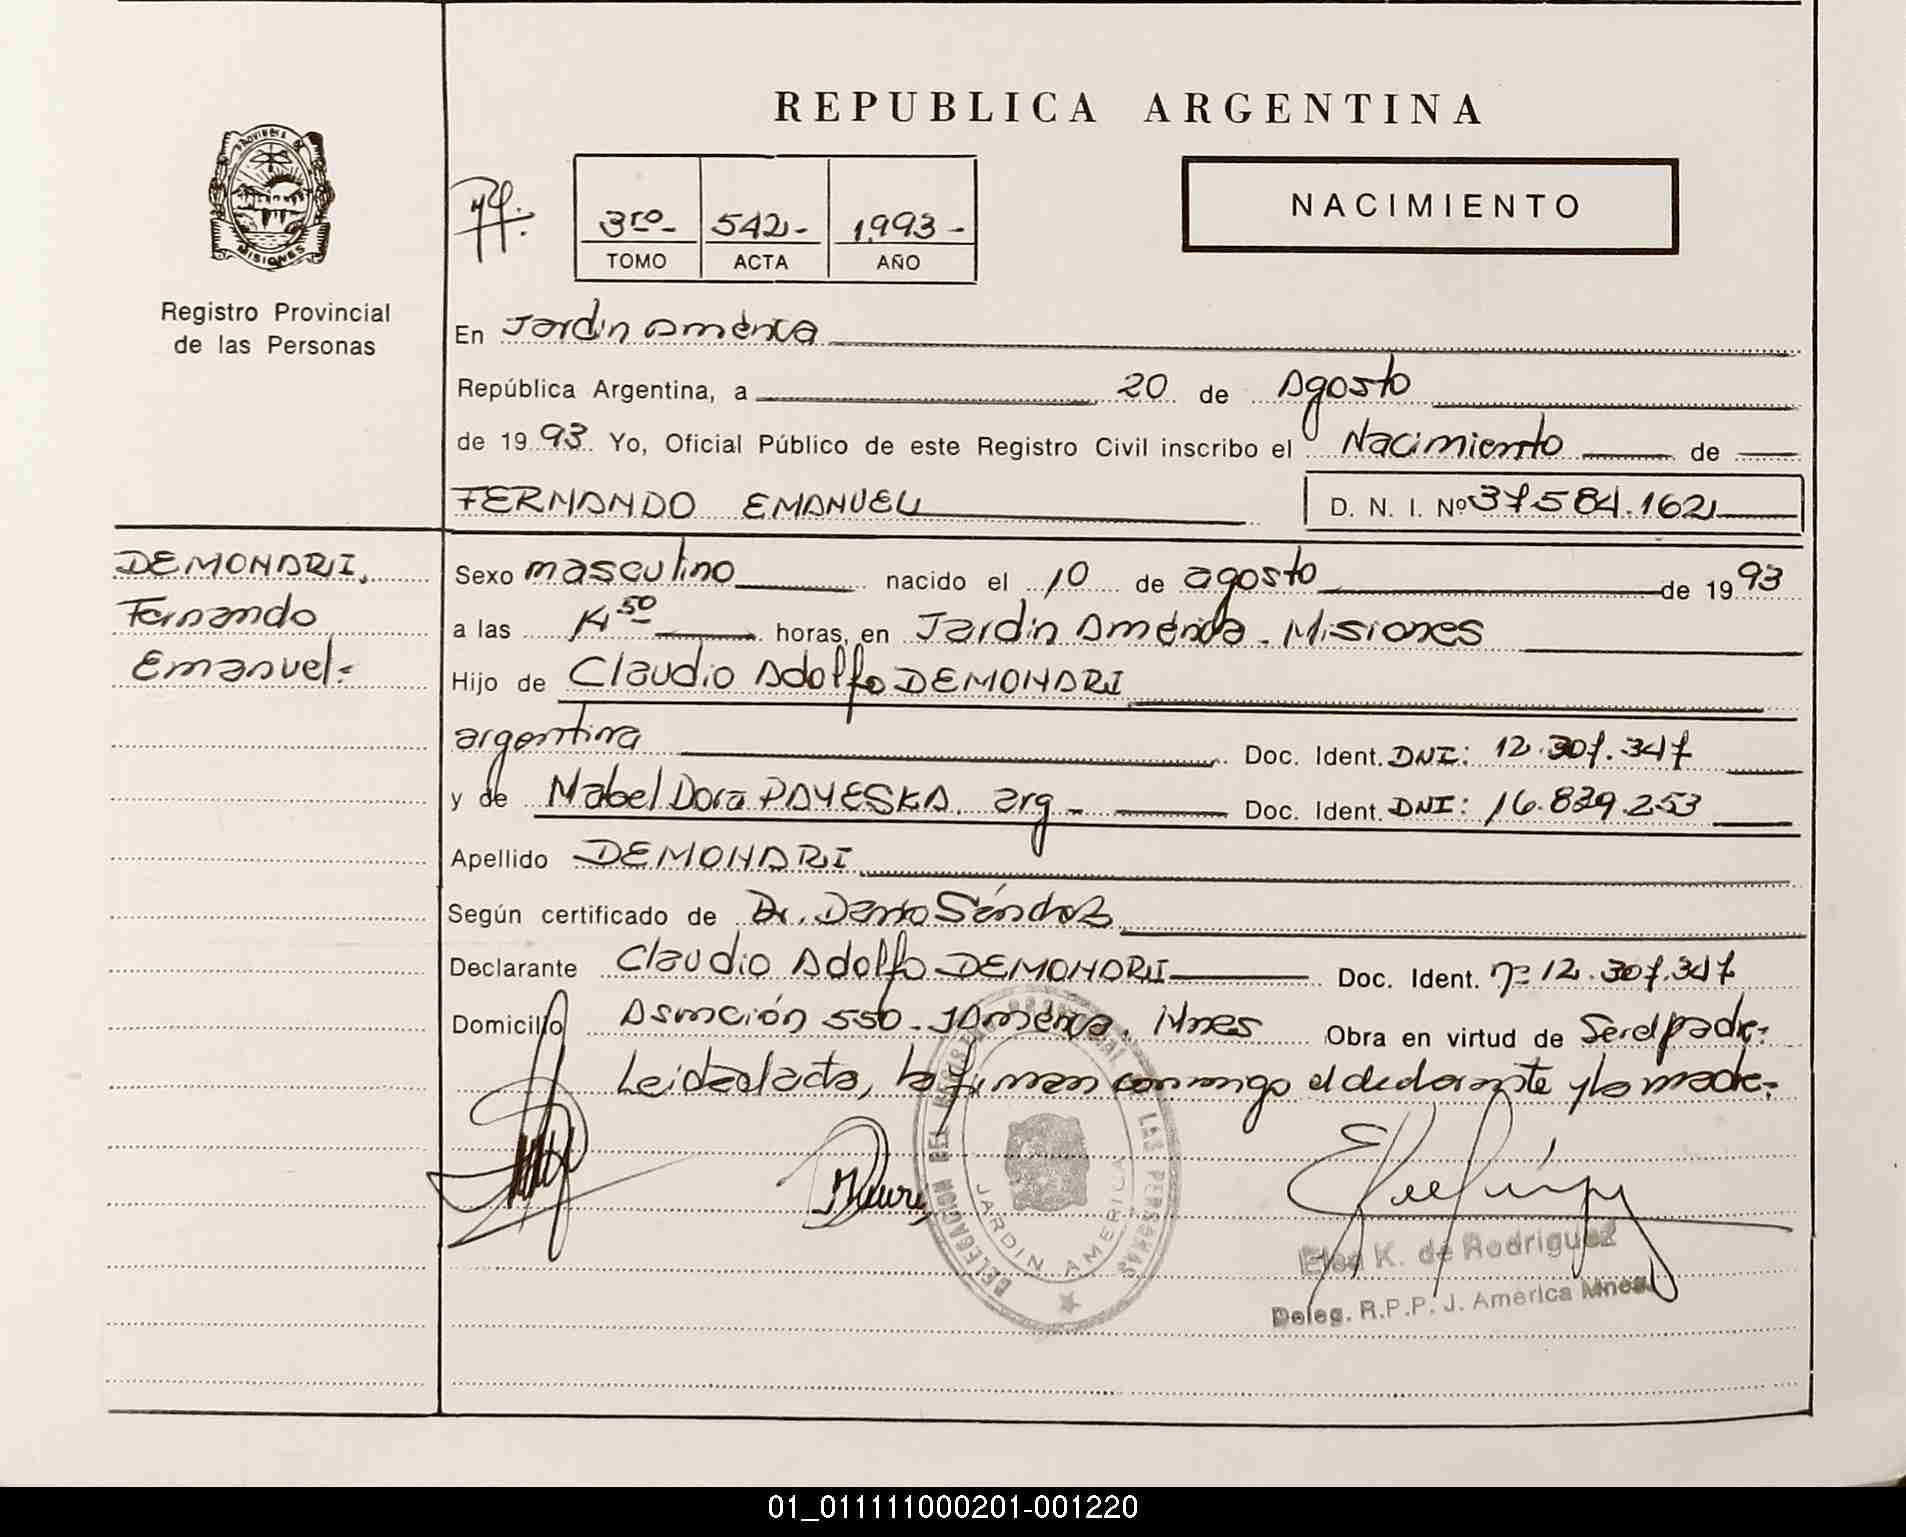 REPUBLICA ARGENTINA
PROVINCIA DE
MISIONES
Registro Provincial
de las Personas
3ro- 542- 1993-
TOMO ACTA AÑO
NACIMIENTO
En Jardin América
República Argentina, a 20 de Agosto
de 1993. Yo, Oficial Público de este Registro Civil inscribo el Nacimiento de
FERNANDO EMANUEL D. N. I. Nº 37.584.162
DEMONDRI,
Fernando
Emanuel.-
Sexo masculino nacido el 10 de agosto de 1993
a las 14 50 horas, en Jardin América - Misiones
Hijo de Claudio Adolfo DEMONDRI
argentina Doc. Ident. DNI: 12.307.347
y de Mabel Dora PAYESKA. arg - Doc. Ident. DNI: 16.829.253
Apellido DEMONDRI
Según certificado de Dr.
Declarante Claudio Adolfo DEMONDRI Doc. Ident. nº 12.307.347
Domicilio Asunción 550 - J América. Mnes Obra en virtud de Ser el padre.-
Leida el acta, la firman conmigo el declarante y la madre.-
DELEGACION DEL REGISTRO PROVINCIAL DE LAS PERSONAS
JARDIN AMERICA
Elsa K. de Rodriguez
Deleg. R.P.P. J. América Mnes.
01_011111000201-001220